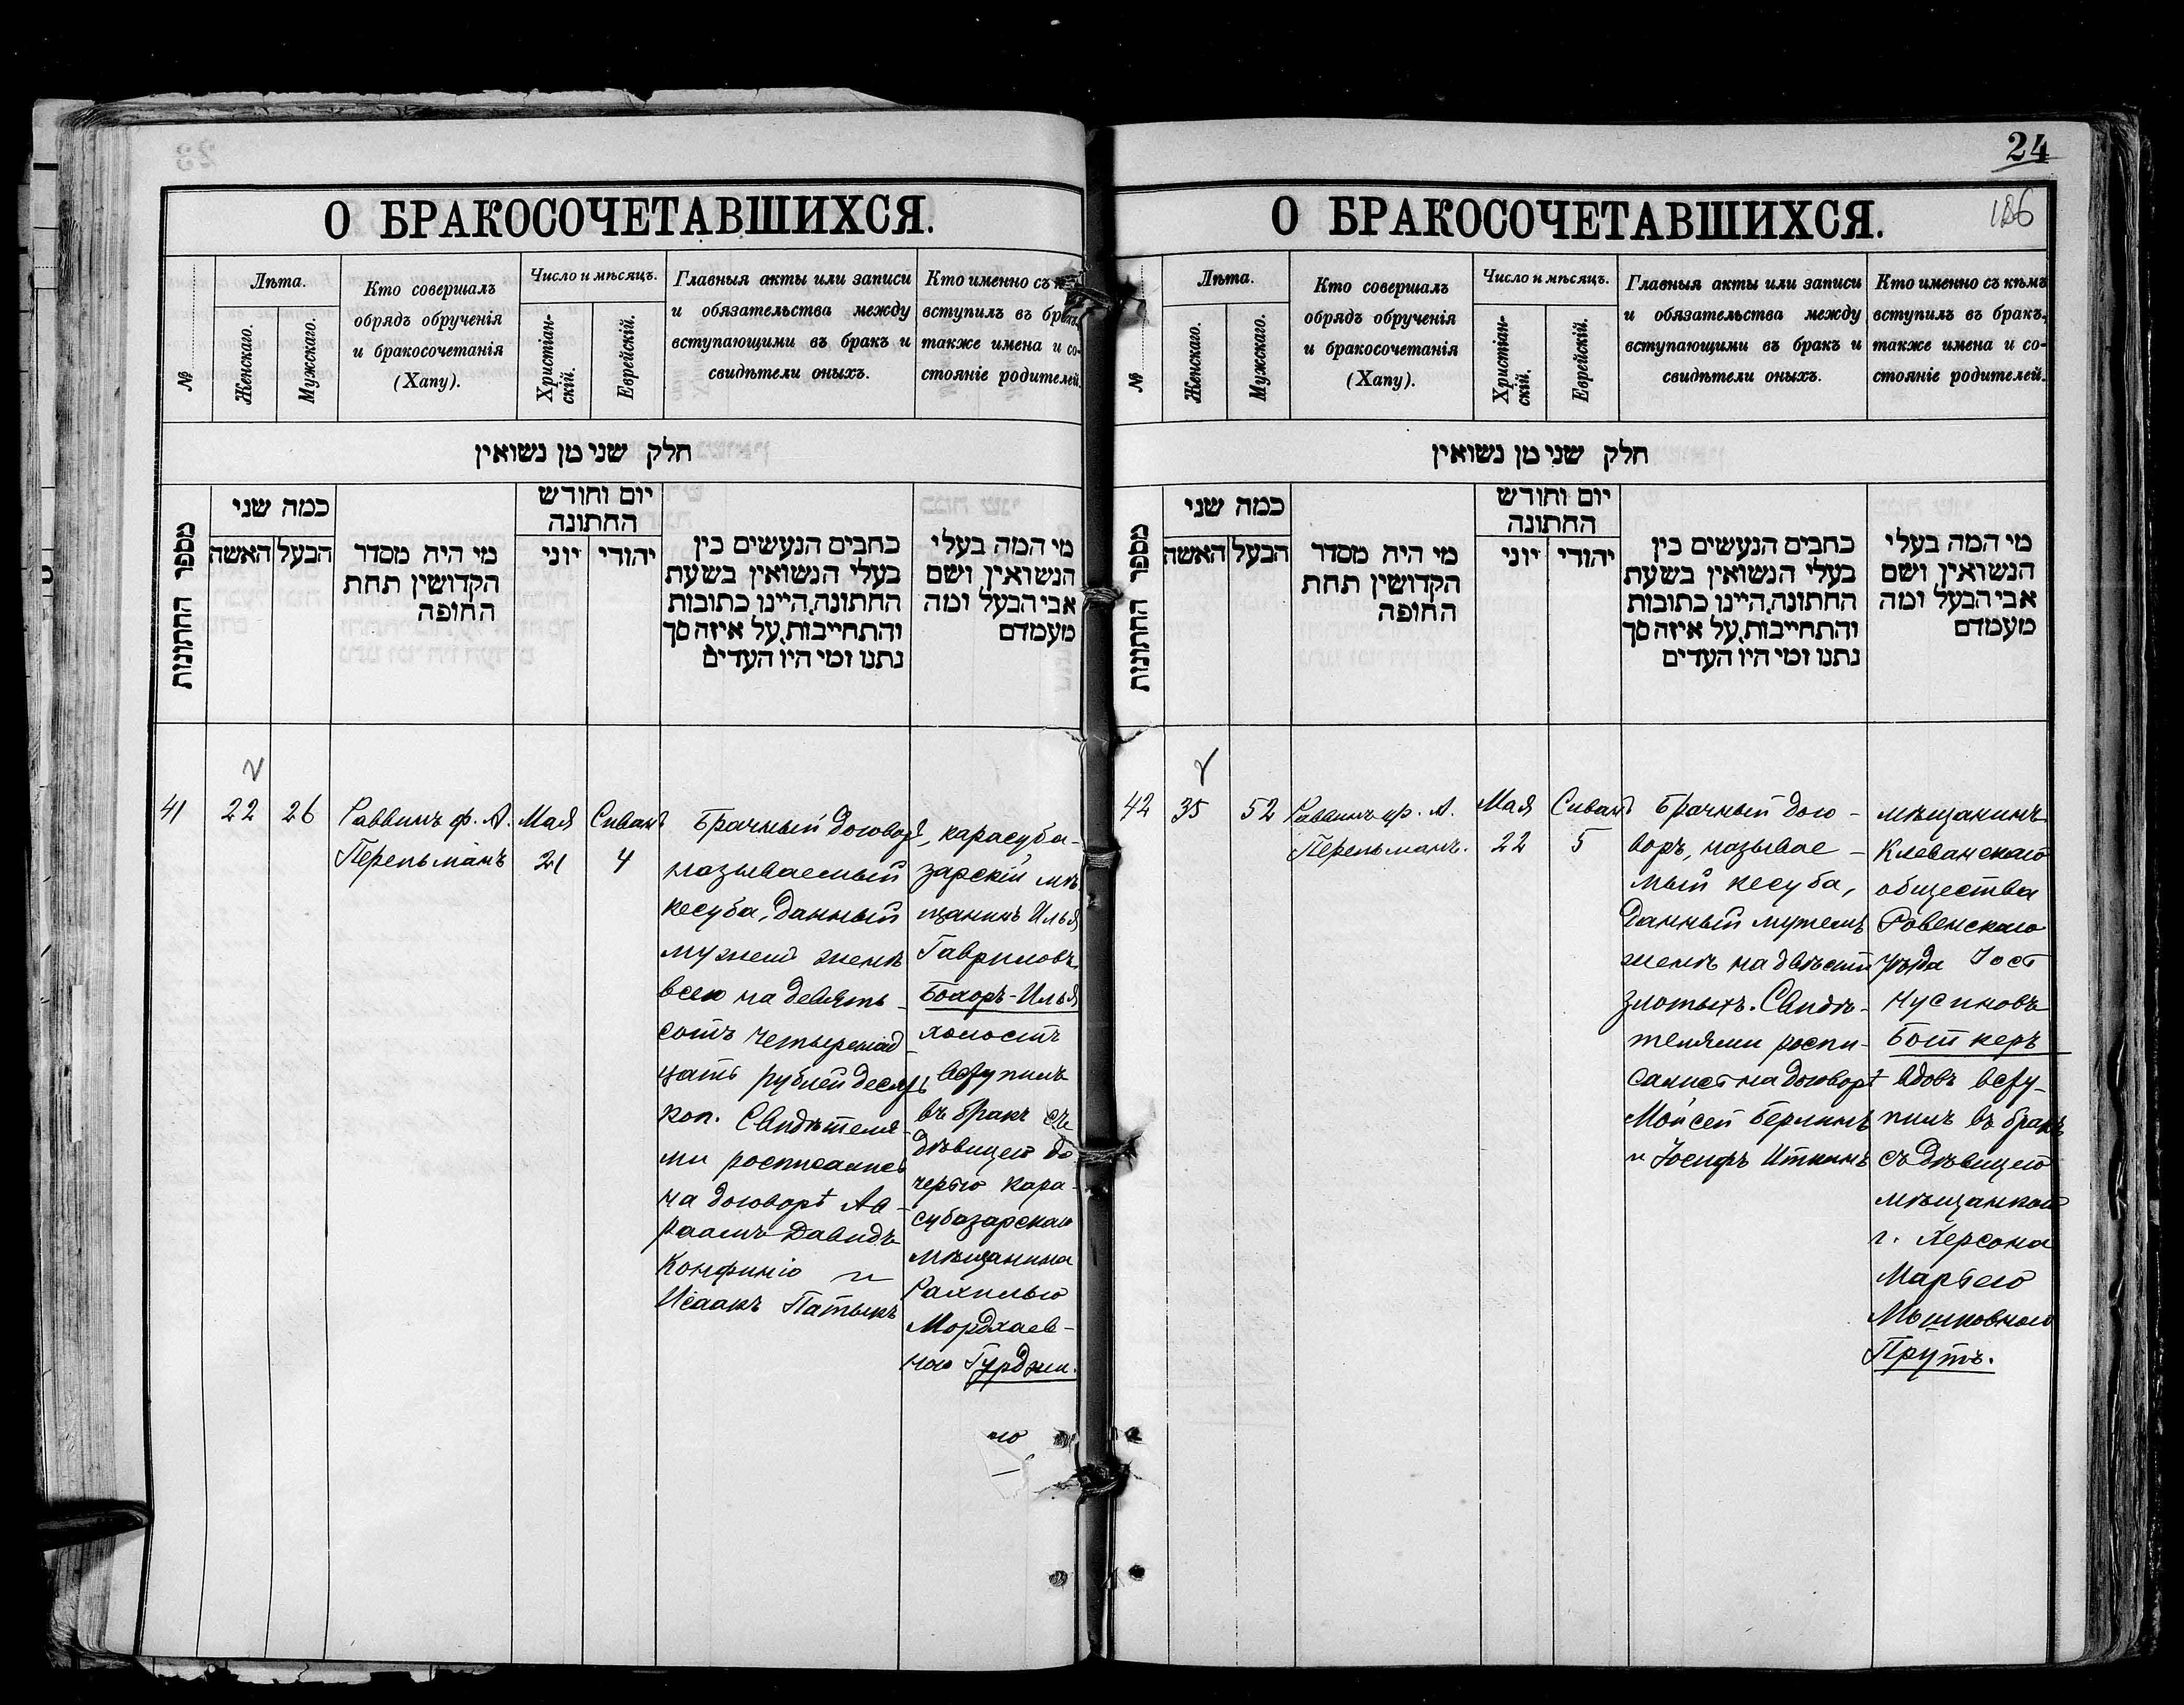 О БРАКОСОЧЕТАВШИХСЯ.
№
Лѣта.
Женскаго.
Мужскаго.
Кто совершалъ
обрядъ обрученія
и бракосочетанія
(Хапу).
Число и мѣсяцъ.
Христіан-
скій.
Еврейскій.
Главныя акты или записи
и обязательства между
вступающими въ бракъ и
свидѣтели оныхъ.
Кто именно съ
вступилъ въ
также имена и со-
стояніе родителей.
חלק שני מן נשואין
מספר החתונות
כמה שני
האשה
הבעל
מי היה מסדר
הקדושין תחת
החופה
יום וחודש
החתונה
יוני
יהודי
כתבים הנעשים בין
בעלי הנשואין בשעת
החתונה, היינו כתובות
והתחייבות, על איזה סך
נתנו ומי היו העדים
מי המה בעלי
הנשואין, ושם
אבי הבעל ומה
מעמדם
41
22
26
Раввинъ ф. А.
Перельманъ
Мая
21
Сиванъ
4
Брачный договоръ,
называемый
кесуба, данный
мужемъ женѣ
всего на девять-
сотъ четырнад
цать рублей десять
коп. Свидѣтеля-
ми росписались
на договорѣ Ав-
раамъ Давидъ
Конфино и
Исаакъ Патыкъ
карасуба-
зарскій мѣ-
щанинъ Илья
Гавриловъ
Бохоръ-Илья
холостъ
вступилъ
въ бракъ съ
дѣвицей до
черью кара-
субазарскаго
мѣщанина
Рахилью
Мордхаев-
ною Гурджи.
ю
24
186
О БРАКОСОЧЕТАВШИХСЯ.
№
Лѣта.
Женскаго.
Мужскаго.
Кто совершалъ
обрядъ обрученія
и бракосочетанія
(Хапу).
Число и мѣсяцъ.
Христіан-
скій.
Еврейскій.
Главныя акты или записи
и обязательства между
вступающими въ бракъ и
свидѣтели оныхъ.
Кто именно съ кѣмъ
вступилъ въ бракъ,
также имена и со-
стояніе родителей.
חלק שני מן נשואין
מספר החתונות
כמה שני
האשה
הבעל
מי היה מסדר
הקדושין תחת
החופה
יום וחודש
החתונה
יוני
יהודי
כתבים הנעשים בין
בעלי הנשואין בשעת
החתונה, היינו כתובות
והתחייבות, על איזה סך
נתנו ומי היו העדים
מי המה בעלי
הנשואין, ושם
אבי הבעל ומה
מעמדם
42
35
52
Раввинъ ф. А.
Перельманъ.
Мая
22
Сиванъ
5
Брачный дого-
воръ, называе-
мый кесуба,
данный мужемъ
женѣ на двѣсти
злотыхъ. Свидѣ-
телями роспи-
сались на договорѣ
Мойсей Берлинъ
и Іосифъ Иткинъ
мѣщанинъ
Клеванскаго
общества
Ровенскаго
уѣзда Іось
Нусиновъ
Боткеръ
вдовъ всту-
пилъ въ бракъ
съ дѣвицею
мѣщанкой
г. Херсона
Марьею
Мошковною
Прутъ.